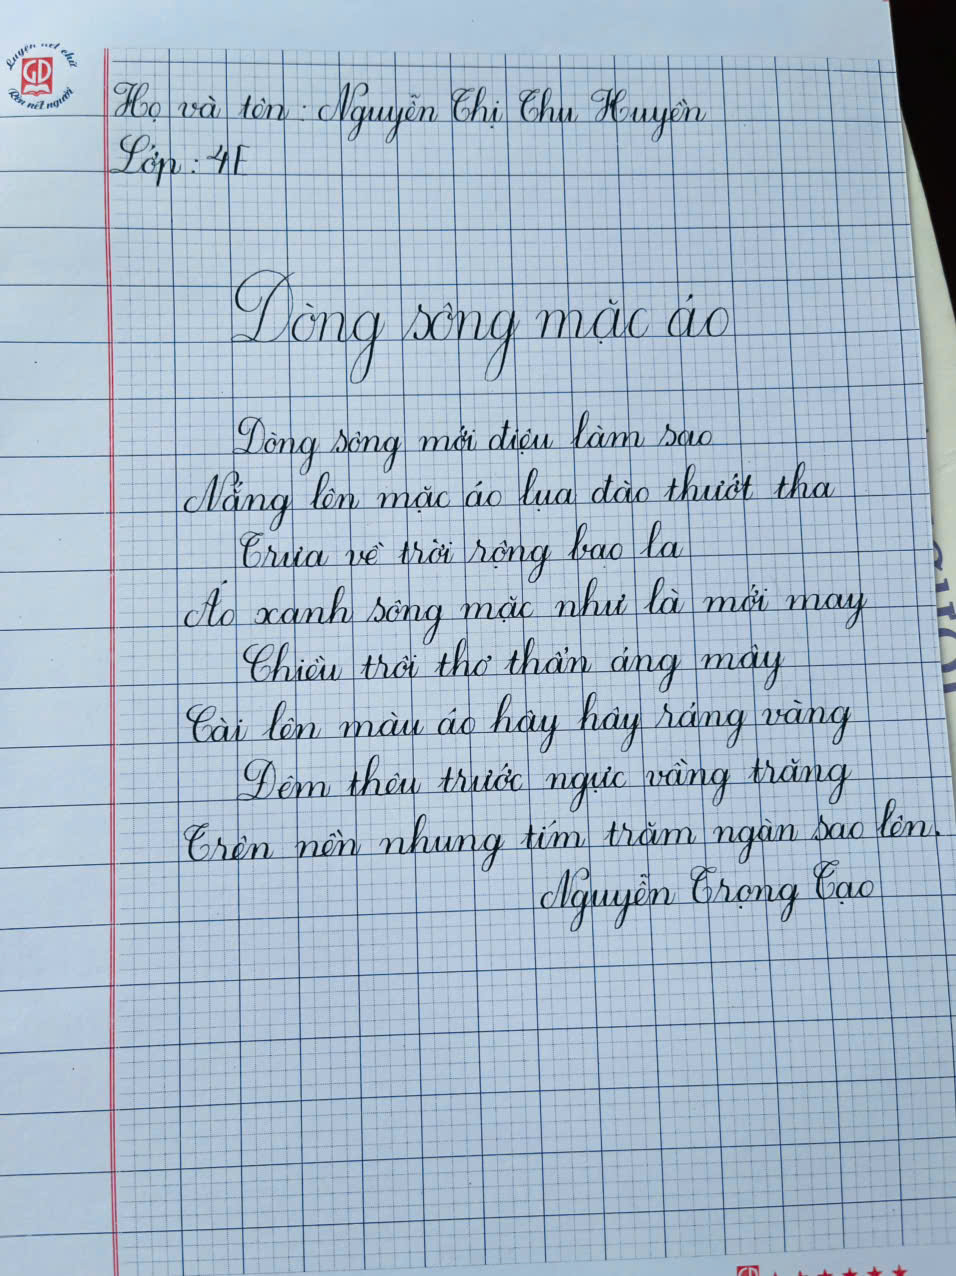 Luyện nét chữ
GD
Rèn nết người
Họ và tên: Nguyễn Thị Thu Huyền
Lớp: 4E
Dòng sông mặc áo
Dòng sông mới điệu làm sao
Nắng lên mặc áo lụa đào thướt tha
Trưa về trời rộng bao la
Áo xanh sông mặc như là mới may
Chiều trôi thơ thẩn áng mây
Cài lên màu áo hây hây ráng vàng
Đêm thêu trước ngực vầng trăng
Trên nền nhung tím trăm ngàn sao lên.
Nguyễn Trọng Tạo